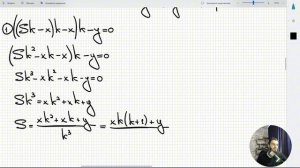 ① ((Sk-x)k-x)k-y=0
(Sk²-xk-x)k-y=0
Sk³-xk²-xk-y=0
Sk³=xk²+xk+y
S= (xk²+xk+y)/k³ = xk(k+1)+y